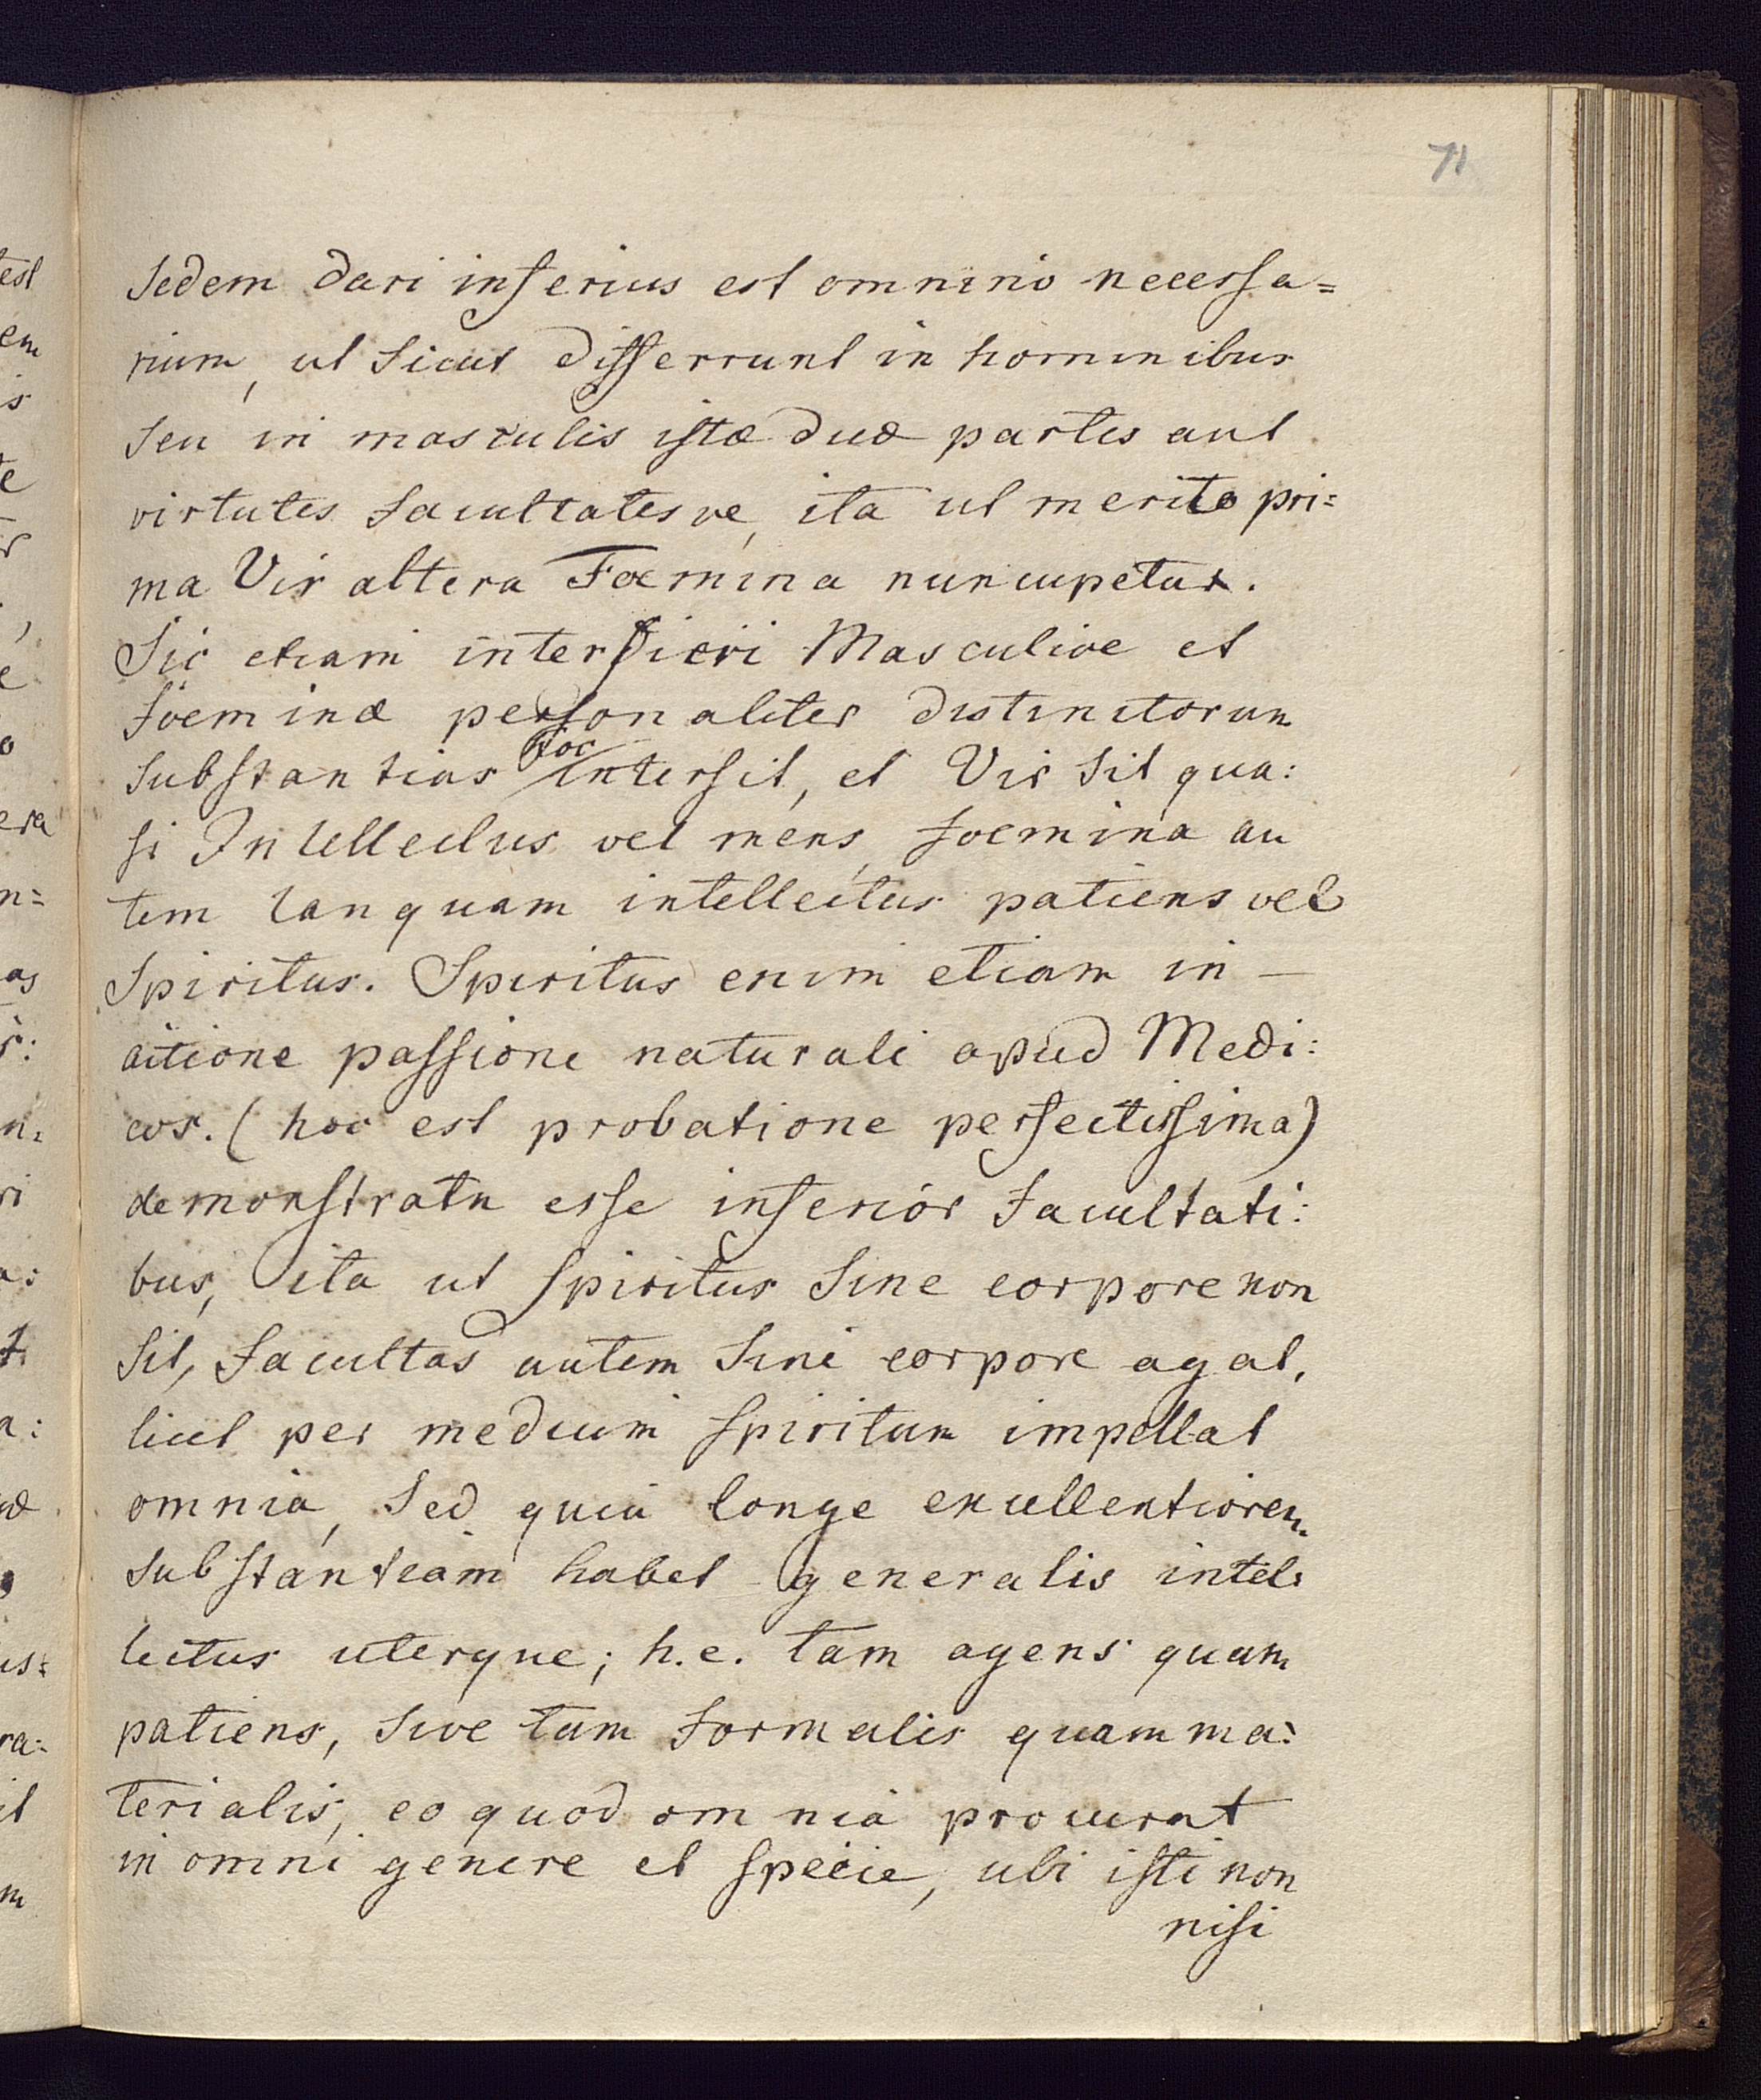 71
Sedem dari inferius est omnino necessa=
rium, ut sicut differrunt in hominibus
seu in masculis istæ duæ partes aut
virtutes facultatesve, ita ut merito pri=
ma Vir altera Foemina nuncupetur.
Sic etiam inter Masculive et
foeminæ personaliter distinctorum
substantias hoc intersit, et Vir sit qua:
si Intellectus vel mens, foemina au
tem tanquam intellectus patiens vel
Spiritus. Spiritus enim etiam in –
actione passione naturali apud Medi:
cos. (hoc est probatione perfectissima)
demonstratu esse inferior facultati:
bus, ita ut spiritus sine corpore non
sit, facultas autem sine corpore agat,
licet per medium spiritum impellat
omnia, Sed quia longe excellentiorem
substantiam habet generalis intel:
lectus uterque; h.e. tam agens quam
patiens, sive tam formalis quam ma:
terialis, eo quod omnia procurat
in omni genere et specie, ubi isti non
nisi